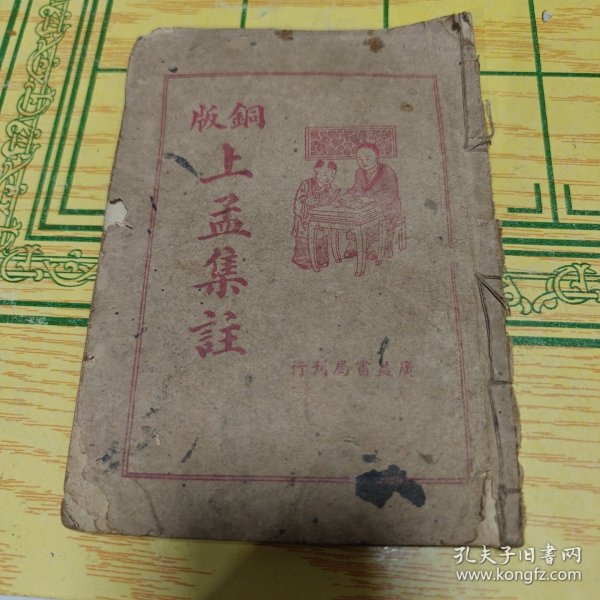 銅版
上孟集註
廣益書局刊行
孔夫子旧书网
www.kongfz.com